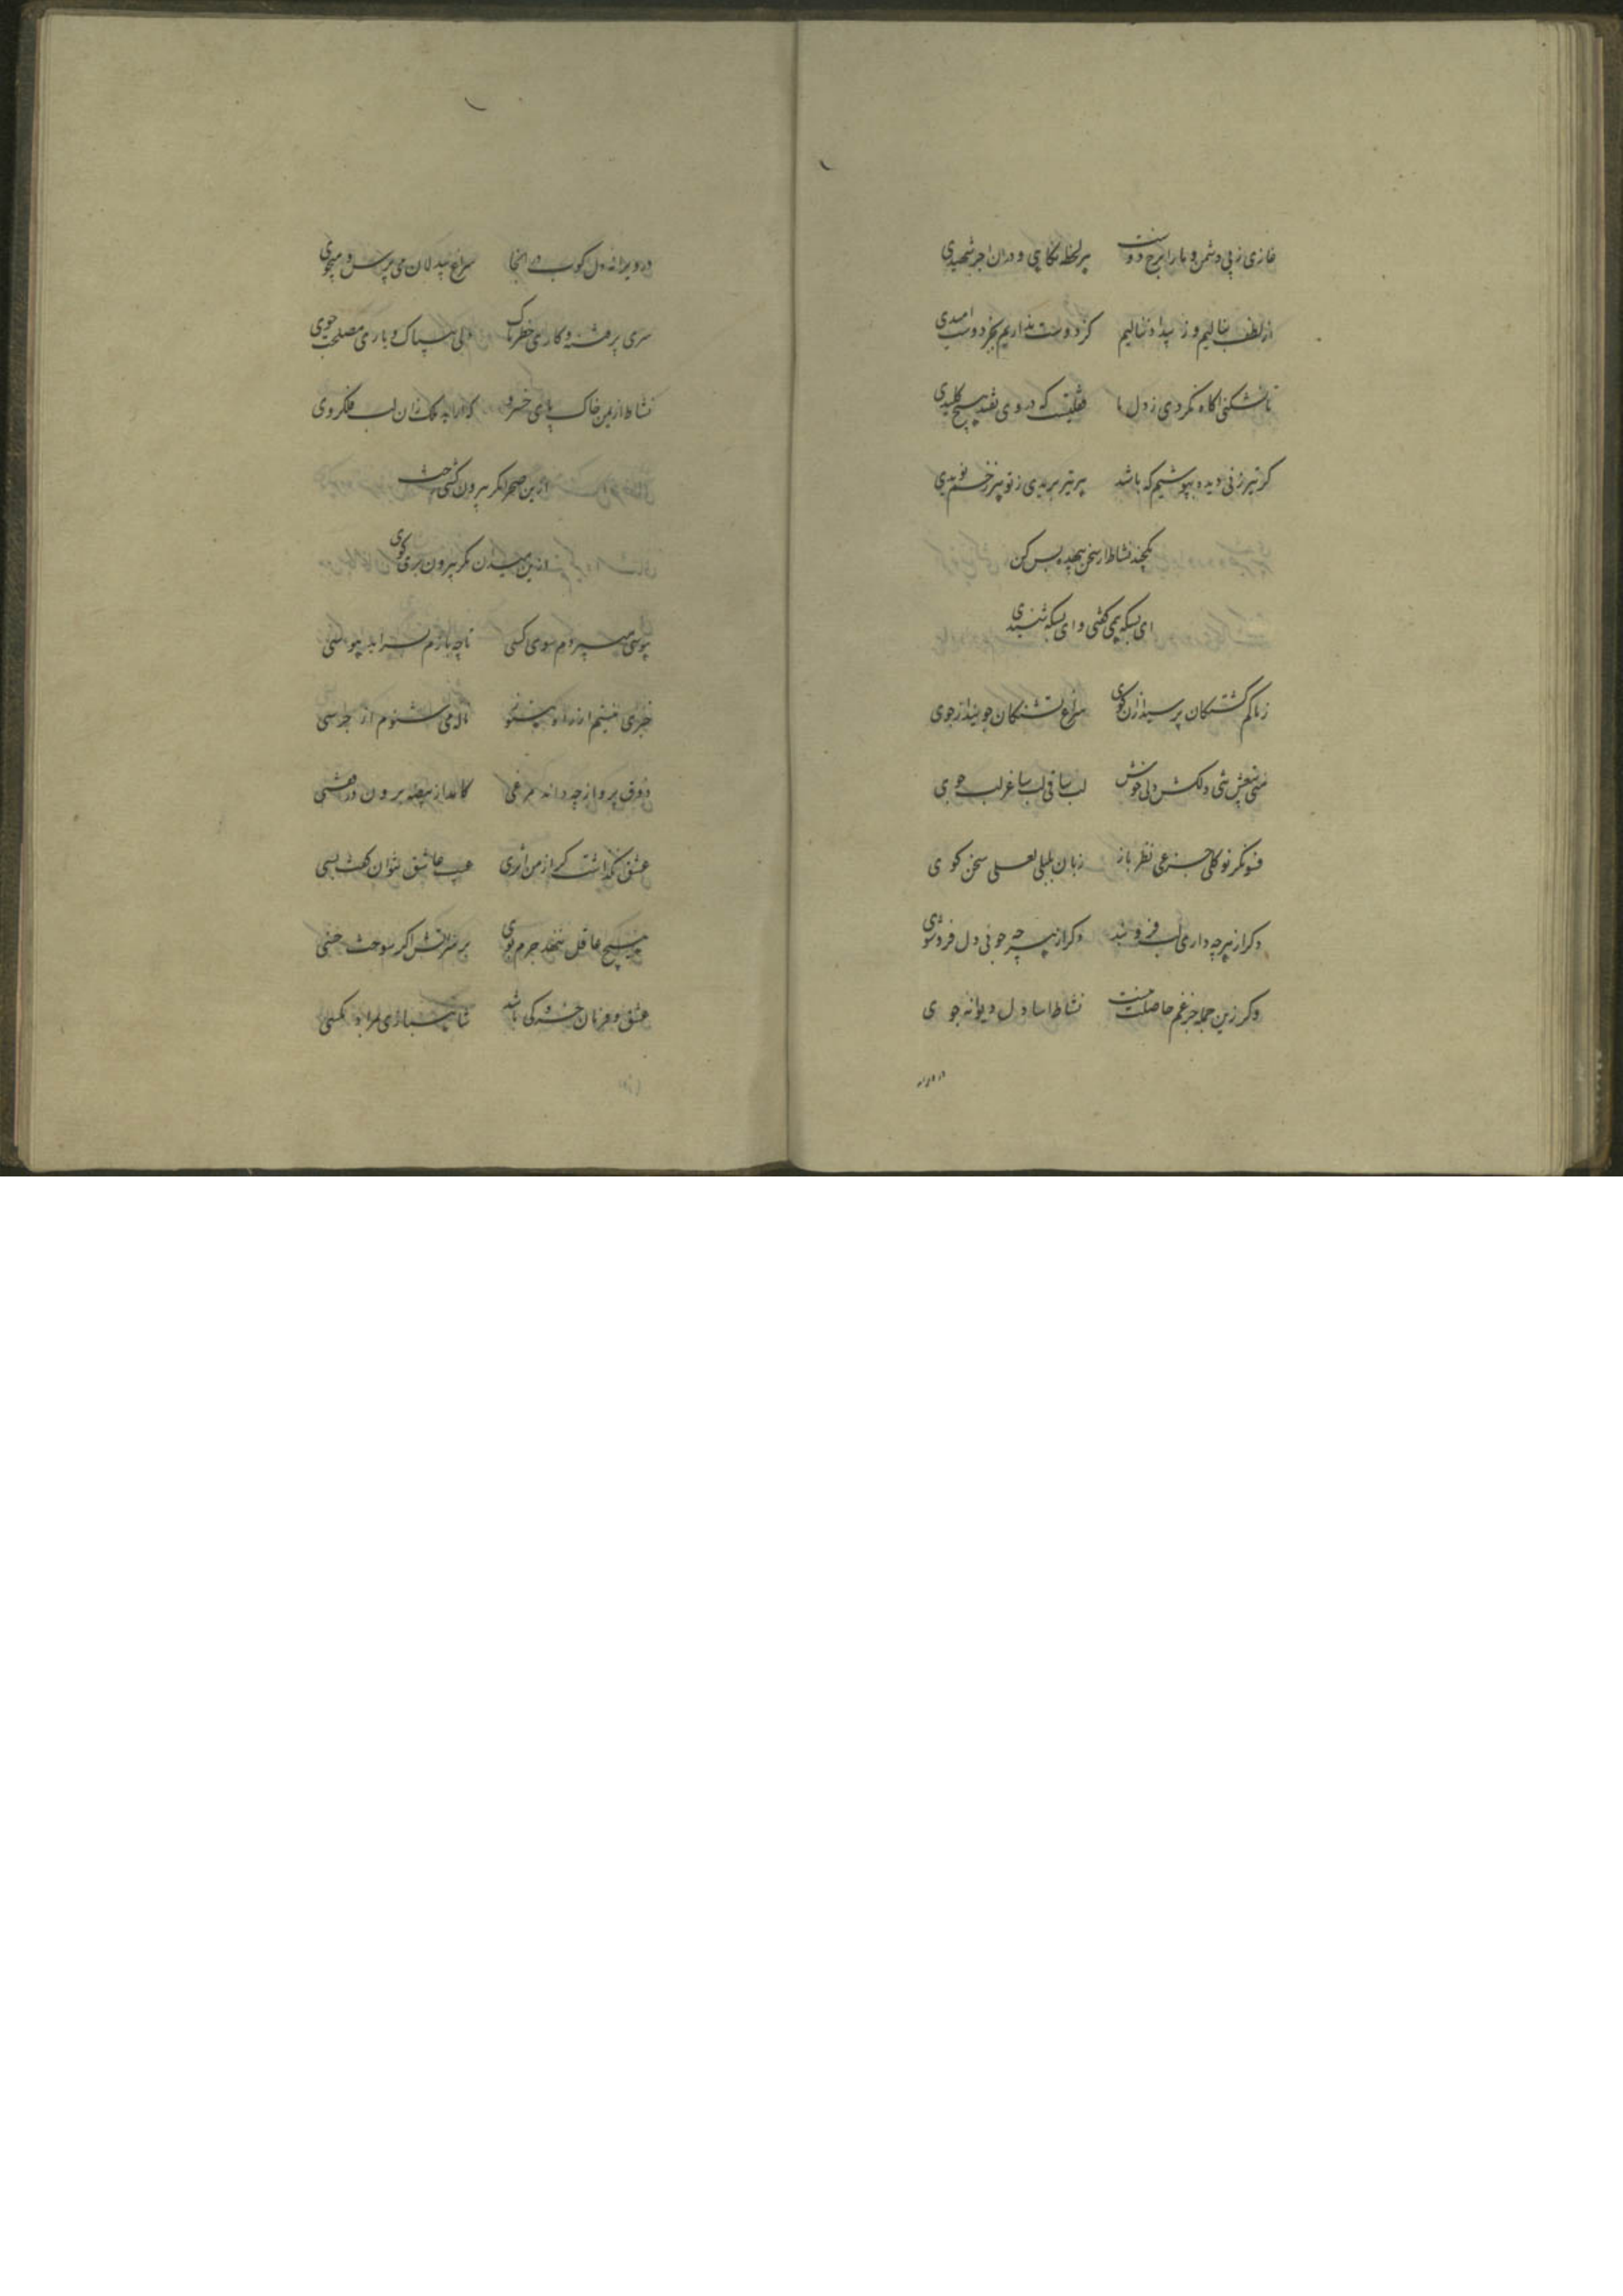 غازی ز پی دشمن و ما را برخ دوست هر لحظه نگاهی و در آن اجر شهیدی
از لطف ننالیم و ز بیداد ننالیم کز دوست نداریم بجز دوست امیدی
تا نشکنی آگاه نکردی ز دل ما قفلیست که در وی نفتد هیچ کلیدی
کر تیر زنی دیده نپوشیم که باشد هر تیر پریدی ز تو هر زخم نویدی
یکچند نشاط از سخن بیهده بس کن
ای بسکه همی کفتی و ای بسکه شنیدی
ز ما کم کشتکان پرسید از آن کوی سراغ تشنکان جوئید از جوی
می بیغش بتی دلکش دلی خوش لب ساقی لب ساغر لب جوی
فسونکر نو کلی جزعی نظر باز زبان بلبلی لعلی سخن کوی
دکر از هر چه داری لب فرو بند دکر از هر چه جوئی دل فرو شوی
وکر زین جمله جز غم حاصلت نیست نشاط آسا دل دیوانه جوی
در ویرانه دل کوب و آنجا سراغ بیدلان می پرس و میجوی
سری پر فتنه و کاری خطرناک دلی بیباک و یاری مصلحت جوی
نشاط از من خاک پای خسرو
ازین صحرا مکر بیرون کشی رخت
ازین میدان مکر بیرون بری کوی
میروم سوی کسی تا چه بازم
خبری نیستم از راه هنوز ناله می شنوم از جرسی
ذوق پرواز چه داند مرغی کامد از بیضه برون در قفسی
عشق نگذاشت که از من اثری عیب عاشق نتوان گفت بسی
هیچ عاقل ننهد جرم بر آتش اگر سوخت خسی
عشق و فرمان خرد کی باشد شاهبازی بمراد مکسی